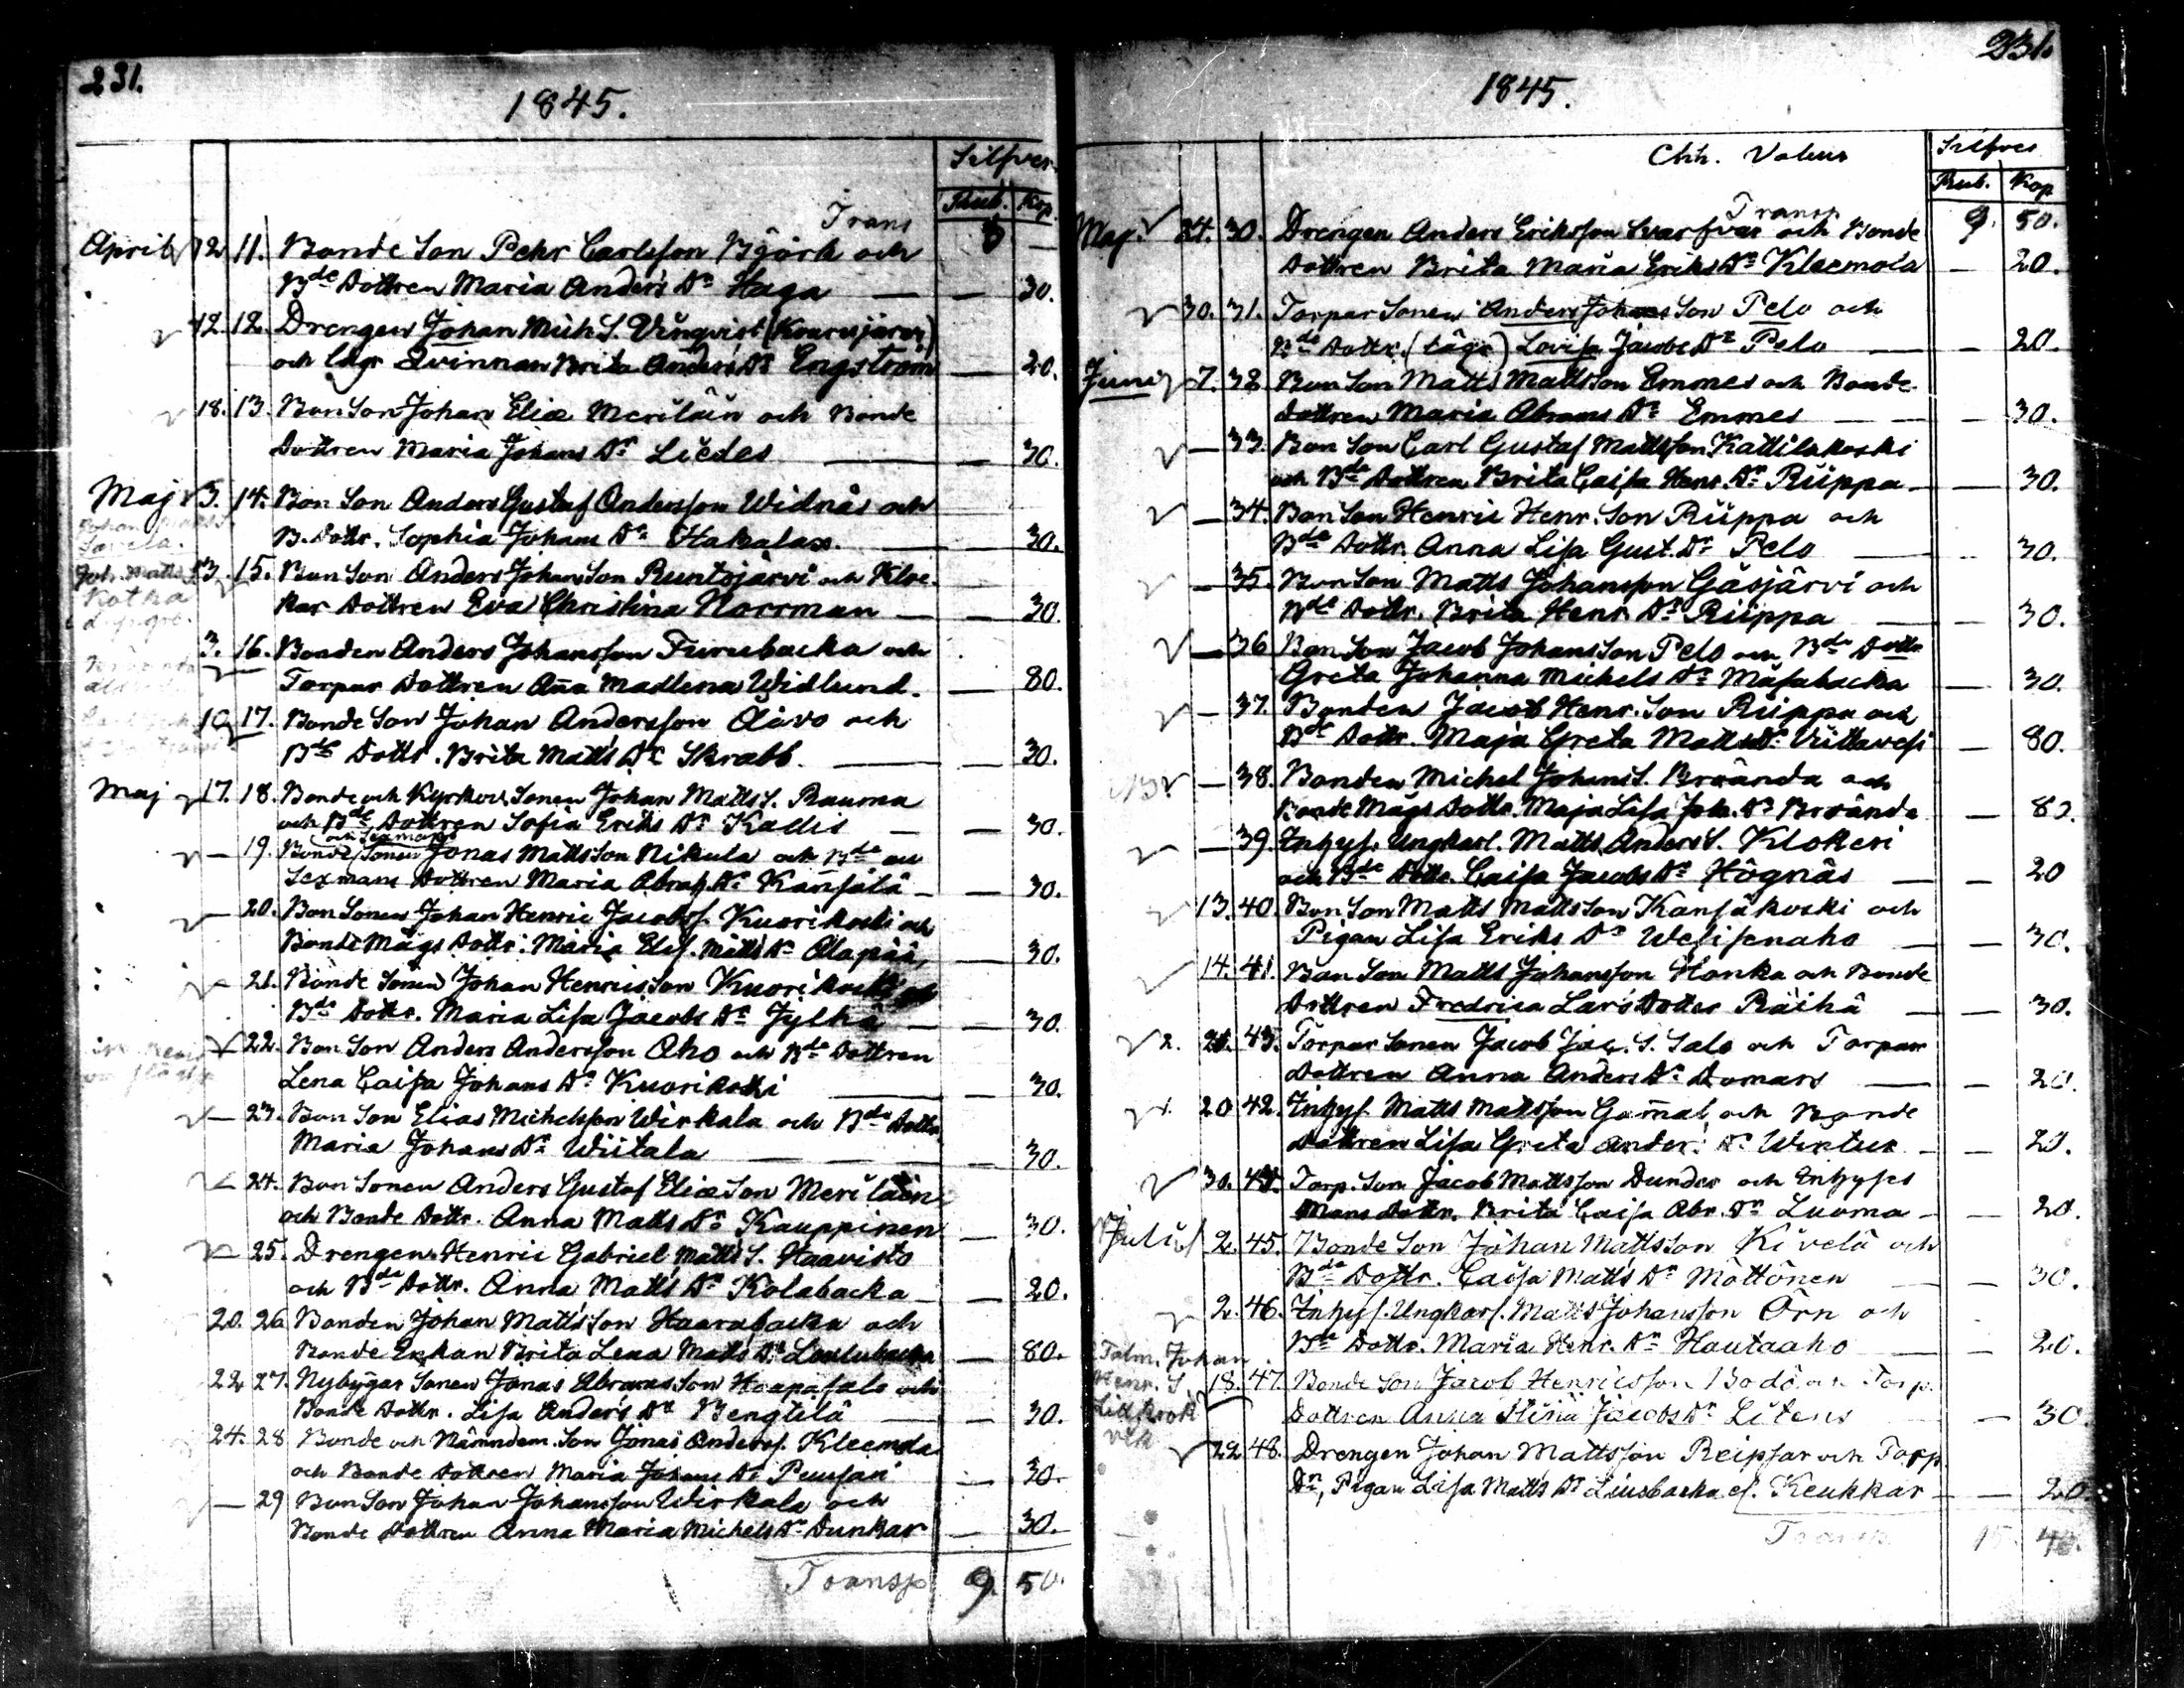 231.
1845.
Silfver
Rub. Kop.
Trans
April 12. 11. Bonde Son Pehr Carlsson Björk och
Bde Dottren Maria Anders Dr Haga — — 30.
12. 12. Drengen Johan Mich S. Vinqvist
och Qvinnan Brita Anders Dr Engström — 20.
18. 13. Bon Son Johan Eliæ Meriläin och Bonde
Dottren Maria Johans Dr Liedes — — 30.
Maj 3. 14. Bon Son Anders Gustaf Andersson Widnäs och
B. Dottr. Sophia Johans Dr Hakalax. — — 30.
3. 15. Bon Son Anders Johansson Runtsjärvi och Kloc
kar Dottren Eva Christina Norrman — — 30.
Kotka
3. 16. Bonden Anders Johansson Furubacka och
Torpar Dottren Aña Madlena Widlund. — 80.
10. 17. Bonde Son Johan Andersson Öivo och
Bde Dottr. Brita Matts Dr Skrabb. — — 30.
Maj 17. 18. Bonde och Kyrkov. Sonen Johan Matts S. Rauma
och Bde Dottren Sofia Eriks Dr Kallis — — 30.
— 19. Bonde Sonen Jonas Mattsson Nikula och Bde och
Sexmans Dottren Maria Abrah. Dr Kañsälä — — 30.
— 20. Bon Sonen Johan Henric Jacobss. Kuorikoski och
Bonde Mågs Dottr. Maria Elis. Matts Dr Alapää, — 30.
— 21. Bonde Sonen Johan Henricsson Kuorikoski och
Bde Dottr. Maria Lisa Jacobs Dr Jylhä — — 30.
— 22. Bon Son Anders Andersson Aho och Bde Dottren
Lena Caisa Johans Dr Kuorikoski — — 30.
— 23. Bon Son Elias Michelsson Wirkala och Bde Dottr.
Maria Johans Dr Wiitala — — 30.
— 24. Bon Sonen Anders Gustaf Eliæ Son Meriläin
och Bonde Dottr. Anna Matts Dr Kauppinen — 30.
— 25. Drengen Henric Gabriel Matts S. Haavisto
och Bde Dottr. Anna Matts Dr Kolabacka — — 20.
20. 26. Bonden Johan Mattsson Haarabacka och
Bonde Enkan Brita Lena Matts Dr — 80.
22. 27. Nybygar Sonen Jonas Abramsson Haapasalo och
Bonde Dottr. Lisa Anders Dr Bengtilä — — 30.
24. 28 Bonde och Nämndem. Son Jonas Anderss. Kleemola
och Bonde Dottren Maria Johans Dr — 30.
— 29 Bon Son Johan Johansson Wirkala och
Bonde Dottren Anna Maria Michels Dr Dunkar — 30.
Transp 9. 50.
231.
1845.
Silfver
Rub. Kop
Transp 9. 50.
Maj. 24. 30. Drengen Anders Eriksson Svarfvar och Bonde
Dottren Brita Maria Eriks Dr Kleemola — 20.
30. 31. Torpar Sonen Anders Johans Son Pelo och
Bde Dottr. Lovisa Jacobs Dr Pelo — — 20.
Junij 7. 32 Bon Son Matts Mattsson Emmes och Bonde
Dottren Maria Abrams Dr Emmes — — 30.
— 33. Bon Son Carl Gustaf Mattsson Kattilakoski
och Bde Dottren Brita Caisa Henr. Dr Riippa — 30.
— 34. Bon Son Henric Henr. Son Riippa och
Bde Dottr. Anna Lisa Gust. Dr Pelo — 30.
— 35. Bon Son Matts Johansson Gäsjärvi och
Bde Dottr. Brita Henr. Dr Riippa — 30.
— 36 Bon Son Jacob Johansson Pelo och Bde Dottr
Greta Johanna Michels Dr Mäsabacka — 30.
— 37. Bonden Jacob Henr. Son Riippa och
Bde Dottr. Maja Greta Matts Dr Viittavesi — 80.
— 38. Bonden Michel Johans S. Broända och
Bonde Mågs Dottr. Maja Lisa Joh. Dr Broända — 80.
— 39. Inhys. Ungkarl. Matts Anders S. Klokeri
och Bde Dottr. Caisa Jacobs Dr Högnäs — — 20
13. 40. Bon Son Matts Mattsson Kansäkoski och
Pigan Lisa Eriks Dr Wesisenaho — — 30.
14. 41. Bon Son Matts Johansson Honka och Bonde
Dottren Fredrica Lars Dotter Räihä — — 30.
2. 43. Torpar Sonen Jacob Jac. S. Salo och Torpar
Dottren Anna Anders Dr Domars — — 20.
1. 20 42. Inhys. Matts Mattsson Gam̃al och Bonde
Dottren Lisa Greta Anders Dr Wentus — — 20.
30. 44. Torp. Son Jacob Mattsson Dunder och Inhyses
Mans Dottr. Brita Caisa Abr. Dr Luoma — — 20.
Julii 2. 45. Bonde Son Johan Mattsson Kivelä och
Bde Dottr. Caisa Matts Dr Möttönen — — 30.
2. 46. Inhys. Ungkarl. Matts Johansson Örn och
Bde Dottr. Maria Henr. Dr Hautaaho — — 20.
Johan
Henr. S
18. 47. Bonde Son Jacob Henricsson Bodö och Torp.
Dottren Anna Stina Jacobs Dr Litens — — 30.
22. 48. Drengen Johan Mattsson Reipsar och Torp.
Dn, Pigan Lisa Matts Dr Liusbacka el. Keukkar — — 20.
Transp 15. 40.